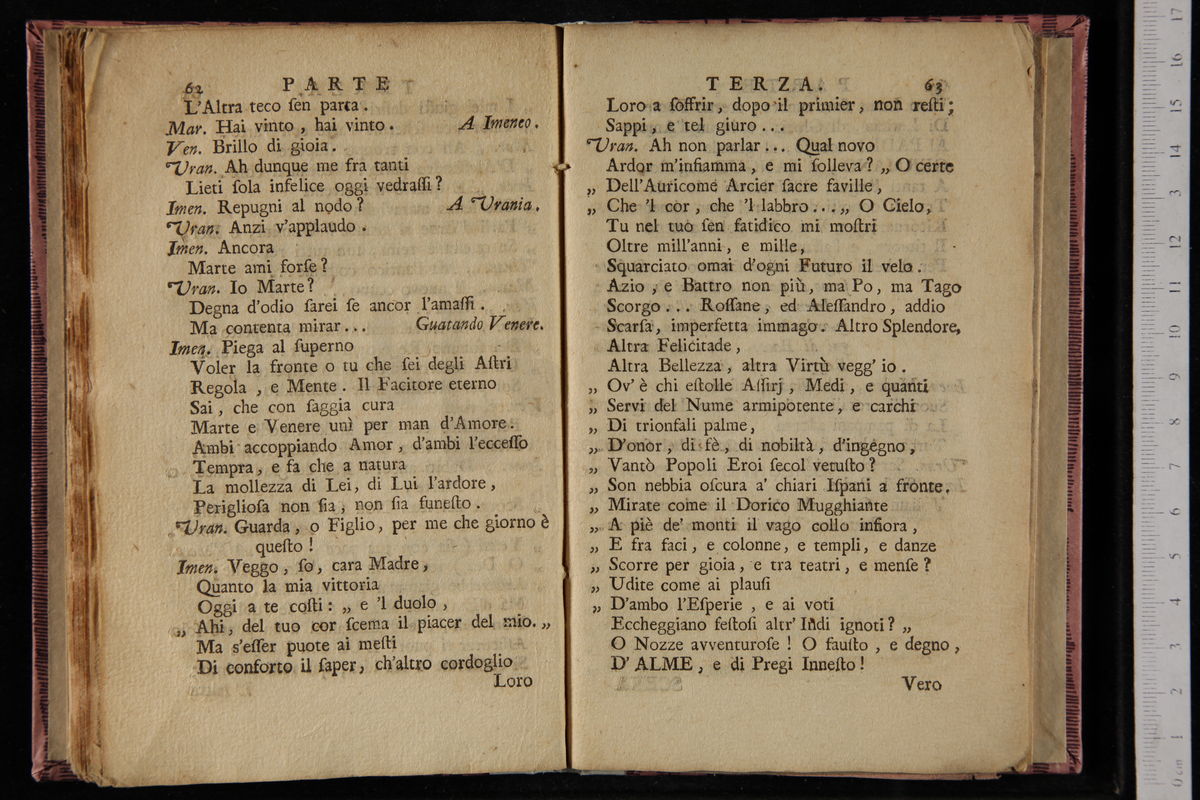 62 PARTE
L'Altra teco ſen parta.
Mar. Hai vinto, hai vinto. A Imeneo.
Ven. Brillo di gioia.
Uran. Ah dunque me fra tanti
Lieti ſola infelice oggi vedraſſi?
Imen. Repugni al nodo? A Urania.
Uran. Anzi v'applaudo.
Imen. Ancora
Marte ami forſe?
Uran. Io Marte?
Degna d'odio ſarei ſe ancor l'amaſſi.
Ma contenta mirar... Guatando Venere.
Imen. Piega al ſuperno
Voler la fronte o tu che ſei degli Aſtri
Regola, e Mente. Il Facitore eterno
Sai, che con ſaggia cura
Marte e Venere unì per man d'Amore.
Ambi accoppiando Amor, d'ambi l'ecceſſo
Tempra, e fa che a natura
La mollezza di Lei, di Lui l'ardore,
Periglioſa non ſia, non ſia funeſto.
Uran. Guarda, o Figlio, per me che giorno è
queſto!
Imen. Veggo, ſo, cara Madre,
Quanto la mia vittoria
Oggi a te coſti: „ e 'l duolo,
„ Ahi, del tuo cor ſcema il piacer del mio. „
Ma s'eſſer puote ai meſti
Di conforto il ſaper, ch'altro cordoglio
Loro
TERZA. 63
Loro a ſoffrir, dopo il primier, non reſti;
Sappi, e tel giuro...
Uran. Ah non parlar... Qual novo
Ardor m'infiamma, e mi ſolleva? „ O certe
„ Dell'Auricome Arcier ſacre faville,
„ Che 'l cor, che 'l labbro...„ O Cielo,
Tu nel tuo ſen fatidico mi moſtri
Oltre mill'anni, e mille,
Squarciato omai d'ogni Futuro il velo.
Azio, e Battro non più, ma Po, ma Tago
Scorgo... Roſſane, ed Aleſſandro, addio
Scarſa, imperfetta immago. Altro Splendore,
Altra Felicitade,
Altra Bellezza, altra Virtù vegg' io.
„ Ov' è chi eſtolle Aſſirj, Medi, e quanti
„ Servi del Nume armipotente, e carchi
„ Di trionfali palme,
„ D'onor, di fè, di nobiltà, d'ingegno,
„ Vantò Popoli Eroi ſecol vetuſto?
„ Son nebbia oſcura a' chiari Iſpani a fronte.
„ Mirate come il Dorico Mugghiante
„ A piè de' monti il vago collo infiora,
„ E fra faci, e colonne, e templi, e danze
„ Scorre per gioia, e tra teatri, e menſe?
„ Udite come ai plauſi
„ D'ambo l'Eſperie, e ai voti
Eccheggiano feſtoſi altr' Indi ignoti? „
O Nozze avventuroſe! O fauſto, e degno,
D' ALME, e di Pregi Inneſto!
Vero
0 cm 1 2 3 4 5 6 7 8 9 10 11 12 13 14 15 16 17